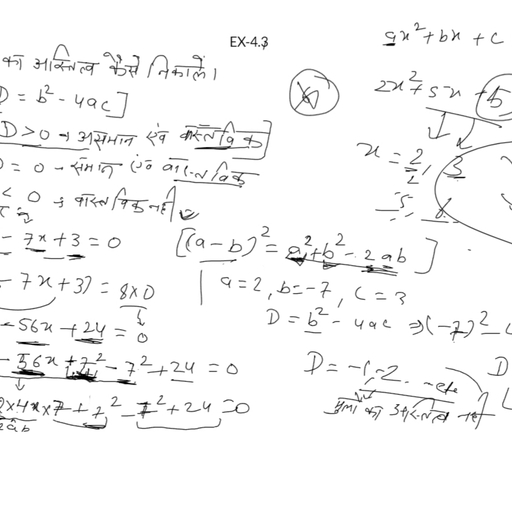 EX-4.3
का अस्तित्व कैसे निकालें।
D = b² - 4ac]
D > 0 → असमान एवं वास्तविक
D = 0 → समान एवं वास्तविक
< 0 → वास्तविक नहीं
- 7x + 3 = 0
- 7x + 3) = 8×0
- 56x + 24 = 0
- 56x + 7² - 7² + 24 = 0
×4x×7 + 7² - 7² + 24 = 0
2ab
ax² + bx + c
2x² + 5x + 5
x = 2/2, 3
[(a-b)² = a² + b² - 2ab]
a = 2, b = -7, c = 3
D = b² - 4ac ⇒ (-7)² -
D = -1, -2. -etc
D
मूलों का अस्तित्व नहीं